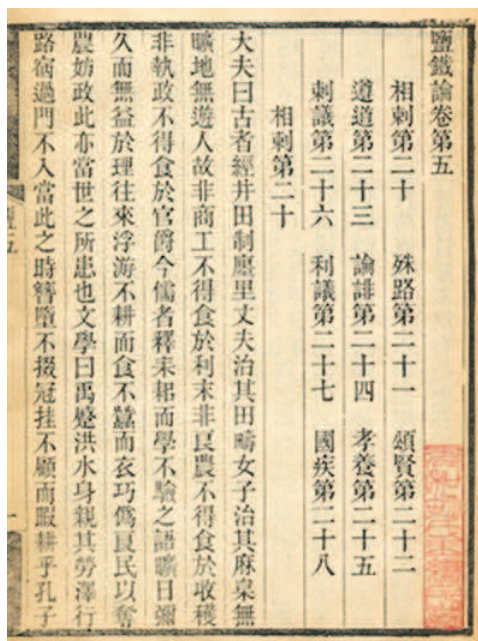 鹽鐵論卷第五
相刺第二十 殊路第二十一 頌賢第二十二
遵道第二十三 論誹第二十四 孝養第二十五
刺議第二十六 利議第二十七 國疾第二十八
相刺第二十
大夫曰古者經井田制廛里丈夫治其田疇女子治其麻枲無
曠地無遊人故非商工不得食於利末非良農不得食於收穫
非執政不得食於官爵今儒者釋耒耜而學不驗之語曠日彌
久而無益於理往來浮游不耕而食不蠶而衣巧僞良民以奪
農妨政此亦當世之所患也文學曰禹蹙洪水身親其勞澤行
路宿過門不入當此之時簪墮不掇冠挂不顧而暇耕乎孔子